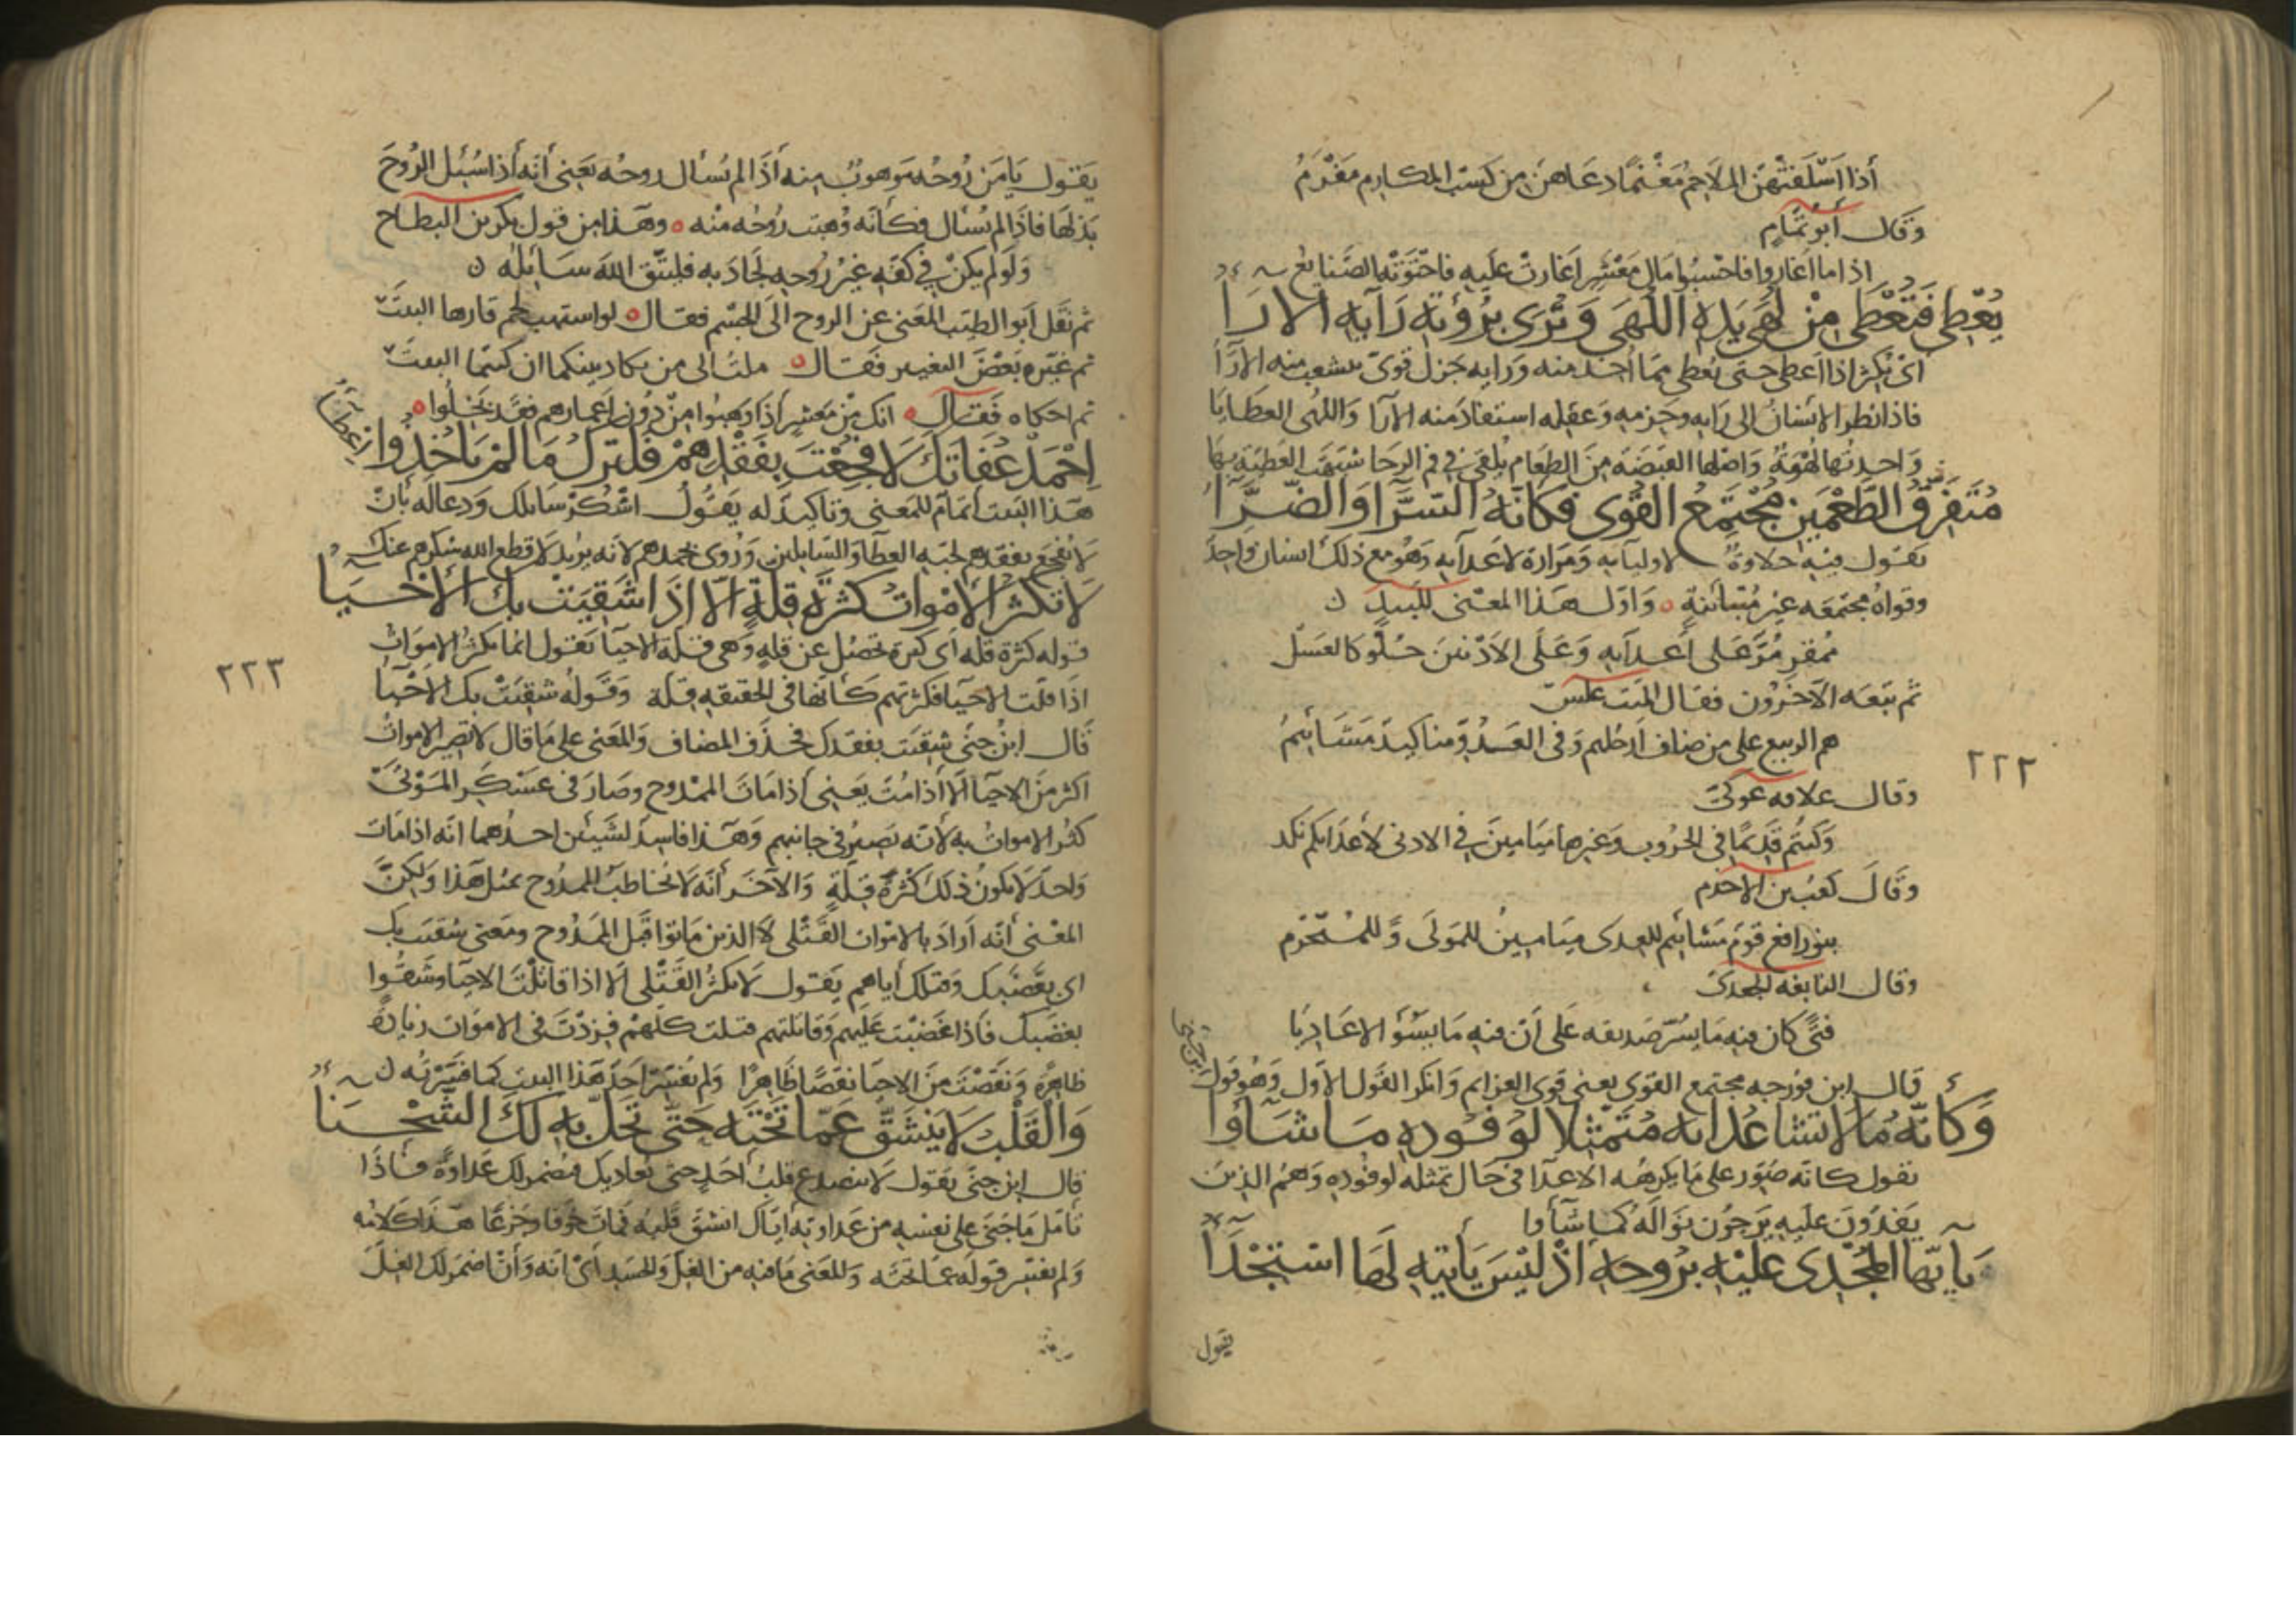 أذا اسلفتهن الملاحم مغنما دعاهن من كسب المكارم مغرم
وقال أبو تمام
اذا ما اغاروا فاحتووا مال معشر اغارت عليه فاحتوته الصنايع
يُعْطي فَتُعْطَى مِنْ لُهَى يَدِهِ اللُّهَى وَتُرَى بِرُؤْيَةِ رَأيِهِ الارَآءُ
اى يكثر اذا اعطى حتى يعطى مما اخذ منه ورايه جزل قوى يتشعب منه الآرآءُ
فاذا نظر الانسان الى رايه وحزمه وعقله استفاد منه الآرا واللهى العطايا
واحدتها لهوة واصلها القبضة من الطعام يلقى في فم الرحا شبهت العطية بها
مُتَفَرِّقُ الطَّعْمَيْنِ مُجْتَمِعُ القُوَى فَكَأنَّهُ السَّرَّآءُ وَالضَّرَّآءُ
يقول فيه حلاوة لاوليآيه ومرارة لاعدآيه وهو مع ذلك انسان واحد
وقواه مجتمعه غير متباينة ٥ واول هذا المعنى للبيد ن
ممقر مر على أعدآيه وعلى الادنين حلو كالعسل
ثم تبعه الآخرون فقال المسيب علس
هم الربيع على من ضاف ارحلهم وفى العدو مناكيد مشائيم
وقال علاقه عوكى
وكنتم قديما فى الحروب وغيرها ميامين في الادنى لأعدايكم نكد
وقال كعب بن الاخدم
بنو رافع قوم مشائيم للعدى ميامين للمولى وللمتحرم
وقال النابغه الجعدى
فتى كان فيه ما يسر صديقه على أن فيه ما يسؤ الاعاديا
قال ابن فورجه مجتمع القوى يعنى قوى العزايم وانكر القول الأول وهو قول
ابن جنى
وَكَأنَّهُ مَا لا تَشَا عُدَاتُهُ مُتَمَثِّلا لِوُفُودِهِ مَا شَآؤُا
يقول كانه صور على ما يكرهه الاعدا فى حال تمثله لوفوده وهم الذين
يفدون عليه يرجون نواله كما شآؤا
يأيّها المُجْدَى عَلَيْهِ رُوحهُ اذْ لَيْسَ يَأتِيهِ لَهَا اسْتِجْدَآءُ
يقول
٢٢٢
يقول يا من روحه موهوب منه أذا لم يسأل روحه يعنى أنه أذا سئل الروح
بذلها فاذا لم يسأل فكأنه وهبت روحه منه ٥ وهذا من قول بكر بن البطاح
ولو لم يكن في كفه غير روحه لجاد به فليتق الله سائله ن
ثم نقل أبو الطيب المعنى عن الروح الى الجسم فقال ٥ لو استهب لحم قارها البيت
ثم غيره بعض التغيير فقال ٥ ملت الى من يكاد بينكما ان كنتما البيت
ثم احكاه فقال ٥ انك من معشر أذا وهبوا من دون اعمارهم فقد بخلوا ٥
اِحْمَدْ عُفَاتَكَ لا فُجِعْتَ بِفَقْدِهِمْ فَلَتَرْكُ مَا لَمْ يَاخُذُوا اعطآءُ
هذا البيت اتمام للمعنى وتاكيد له يقول اشكر سايلك ودعا له بان
لا يفجع بفقدهم لحبه العطآ والسايلين وروى بحمدهم لانه يريد لا قطع الله شكرهم عنك
لا تَكْثُرُ الأمْوَاتُ كَثْرَةَ قِلَّةٍ اِلّا اذَا شَقِيَتْ بِكَ الأحْيَآءُ
قوله كثرة قله أى كثرة تحصل عن قلة وهى قلة الاحيآ يقول انما يكثر الاموات
اذا قلت الاحيا فكثرتهم كأنها فى الحقيقه قلة وقوله شقيت بك الاحيآ
قال ابن جنى شقيت بفقدك فحذف المضاف والمعنى على ما قال لا تصير الاموات
اكثر من الاحيآ الا أذا مت يعنى أذا مات الممدوح وصار فى عسكر الموتى
كثر الاموات به لأنه يصير فى جانبهم وهذا فاسد لشيئين احدهما انه اذا مات
واحد لا يكون ذلك كثرة قلة والآخر أنه لا يخاطب الممدوح بمثل هذا ولكن
المعنى أنه أراد بالاموات القتلى لا الذين ماتوا قبل الممدوح ومعنى شقيت بك
اى بغضبك وقتلك أياهم يقول لا يكثر القتلى الا اذا قاتلت الاحيا وشقوا
بغضبك فاذا غضبت عليهم وقاتلتهم قتلت كلهم فزدت فى الاموات زيادة
ظاهرة ونقصت من الاحيا نقصا ظاهرا ولم يفسر احد هذا البيت كما فسرته ن
وَالقَلْبُ لا يَنْشَقُّ عَمَّا تَحْتَهُ حَتَّى تَحُلَّ بِهِ لَكَ الشَّحْنَآءُ
قال ابن جنى يقول لا ينصدع قلب احد حتى يعاديك فيضمر لك عداوة فاذا
تأمل ما جنى على نفسه من عداوته أياك انشق قلبه فمات خوفا وجزعا هذا كلامه
ولم يفسر قوله عما تحته والمعنى ما فيه من الغل والحسد أى انه وأن اضمر لك الغل
٢٢٣